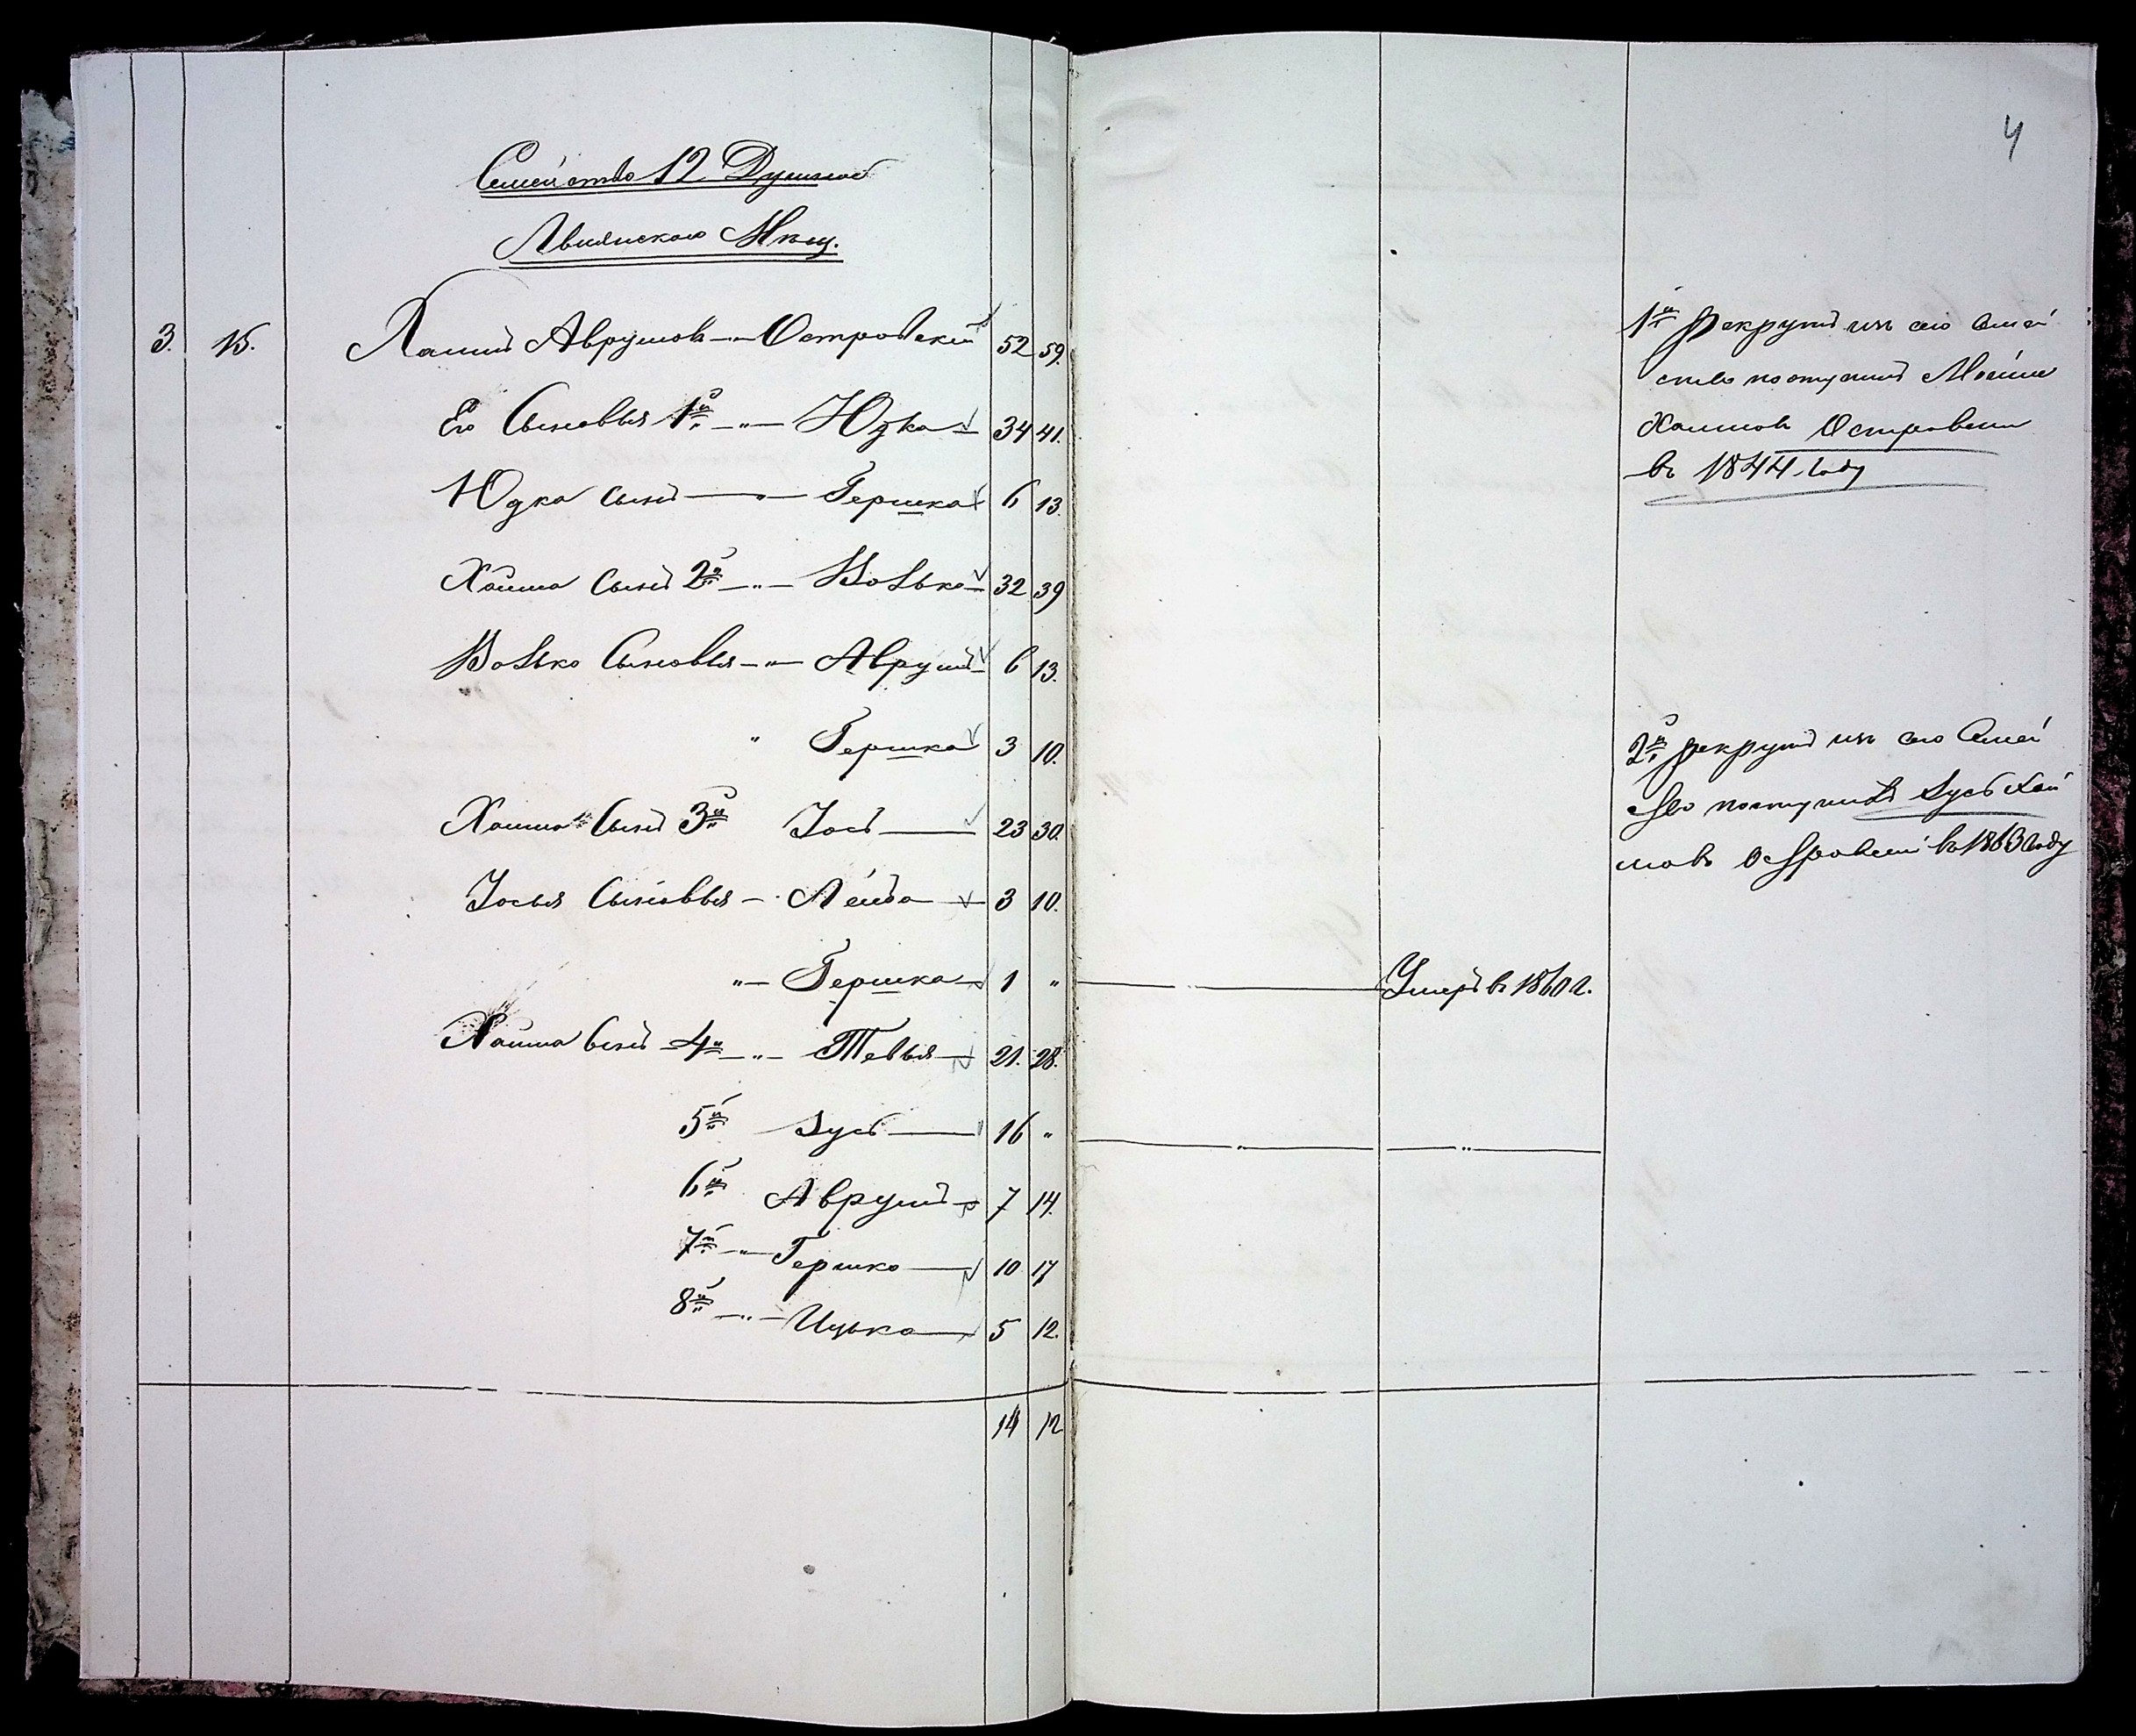 4
Семейство 12 Душное
Мѣщ.
3. 15. Хаимъ Аврумовъ -"- Островскій 52 59.
Его Сыновья 1й -"- Юдка 34 41.
Юдка Сынъ -"- Гершка 6 13.
Хаима Сынъ 2й -"- Волька 32 39
Волько Сыновья -"- Аврумъ 6 13.
" Гершка 3 10.
Хаима Сынъ 3й Іось 23 30.
Іосья Сыновья - Лейба 3 10.
"- Гершка 1 " Умеръ въ 1860 г.
Хаима Сынъ 4й -"- Тевья 21. 28.
5й Зусь 16 " "
6й Аврумъ 7 14.
7й -"- Гершко 10 17
8й -"- Ицька 5 12.
14 12
1й Рекрутъ изъ сего Семей
ства поступилъ Мовша
Хаимовъ Островскій
въ 1844 году
2й рекрутъ изъ сего Семей
ство поступилъ Зусь Хаи
мовъ Островскій въ 1863 году